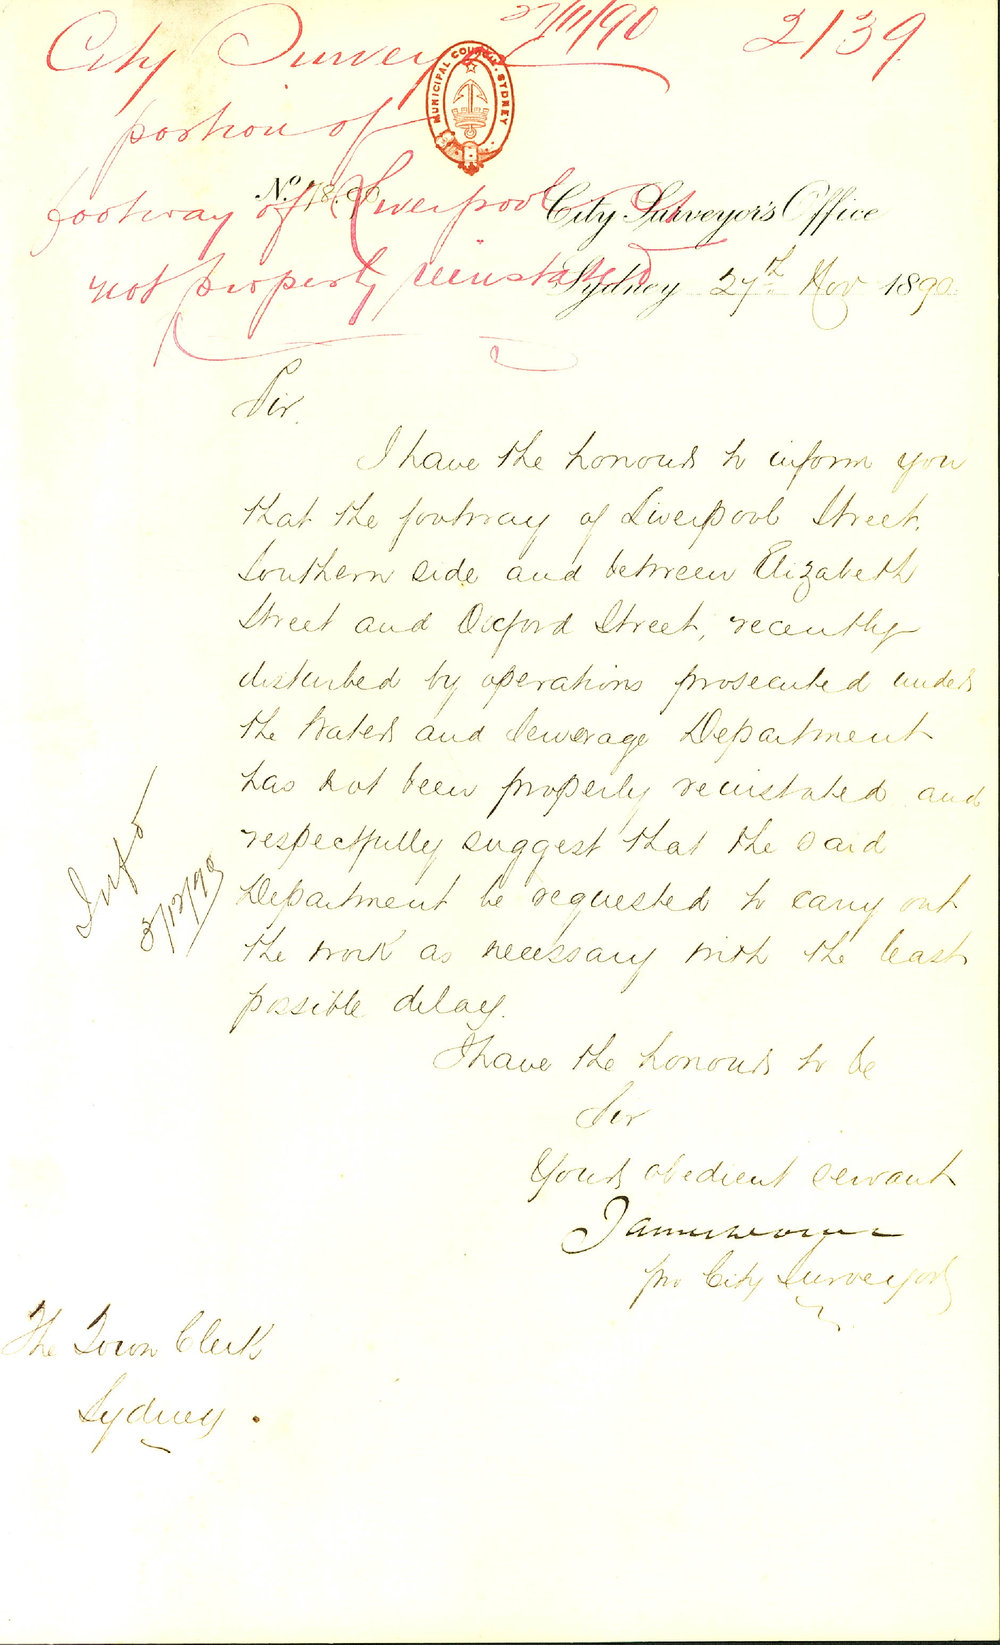 27/11/90
2139
City Surveyor
portion of
footway of Liverpool St
not properly reinstated
MUNICIPAL COUNCIL SYDNEY
No.
City Surveyor's Office
Sydney 27th Nov 1890
Sir
I have the honour to inform you
that the footway of Liverpool Street,
Southern side and between Elizabeth
Street and Oxford Street, recently
disturbed by operations prosecuted under
the Water and Sewerage Department
has not been properly reinstated and
respectfully suggest that the said
Department be requested to carry out
the work as necessary with the least
possible delay.
I have the honour to be
Sir
Your obedient servant
pro City Surveyor
The Town Clerk
Sydney.